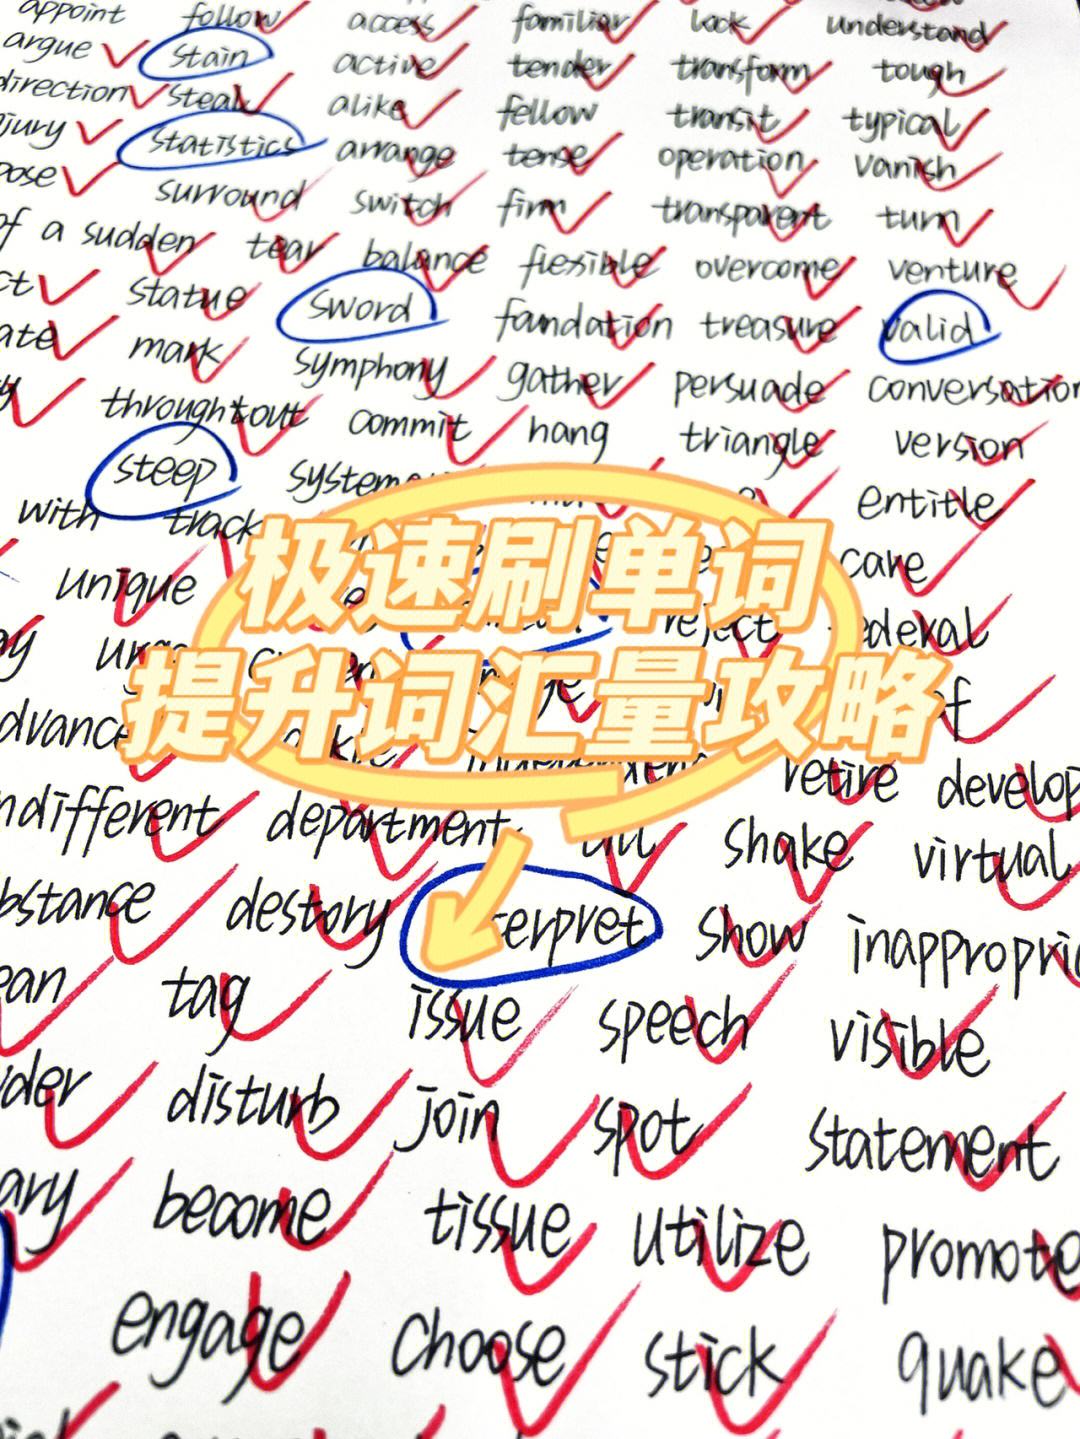 appoint follow access familiar lack understand
argue stain active tender transform tough
direction steal alike fellow transit typical
jury statistics arrange tense operation vanish
pose surround switch firm transparent turn
of a sudden tear balance flexible overcome venture
ct statue sword foundation treasure valid
ate mark symphony gather persuade conversation
throughtout commit hang triangle version
steep system entitle
with track care
unique reject ederal
极速刷单词
提升词汇量攻略
dvance f
retire develop
ndifferent department shake virtual
bstance destory terpret show inappropri
ean tag issue speech visible
ider disturb join spot statement
ary become tissue utilize promote
engage choose stick quake